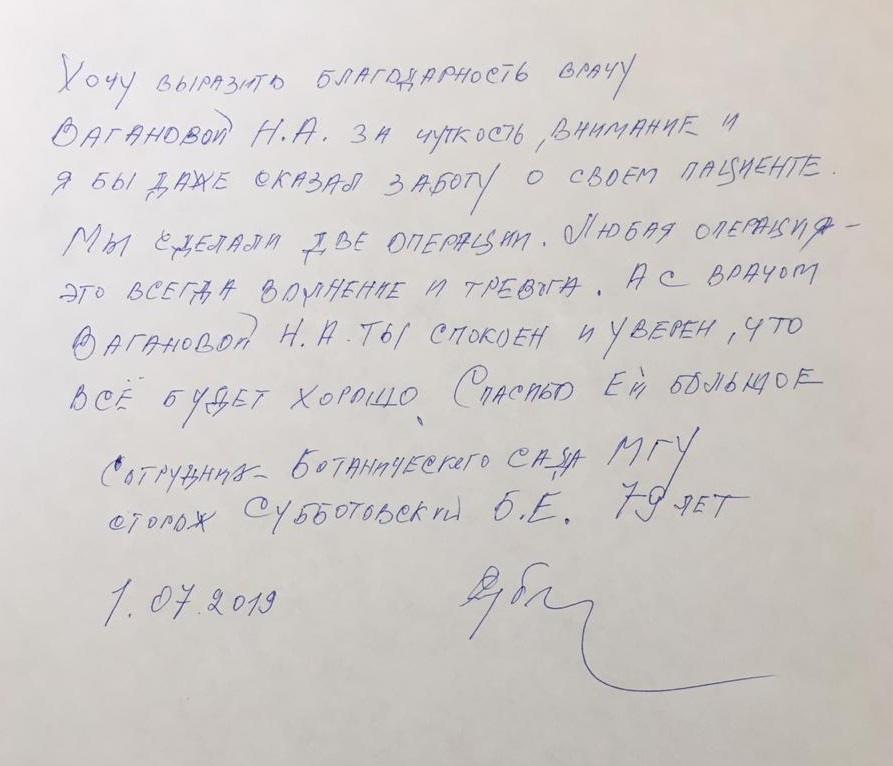 Хочу выразить благодарность врачу
Вагановой Н.А. за чуткость, внимание и
я бы даже сказал заботу о своем пациенте.
Мы сделали две операции. Любая операция –
это всегда волнение и тревога. А с врачом
Вагановой Н.А. ты спокоен и уверен, что
всё будет хорошо. Спасибо ей большое
Сотрудник Ботанического сада МГУ
сторож Субботовский Б.Е. 79 лет
1.07.2019